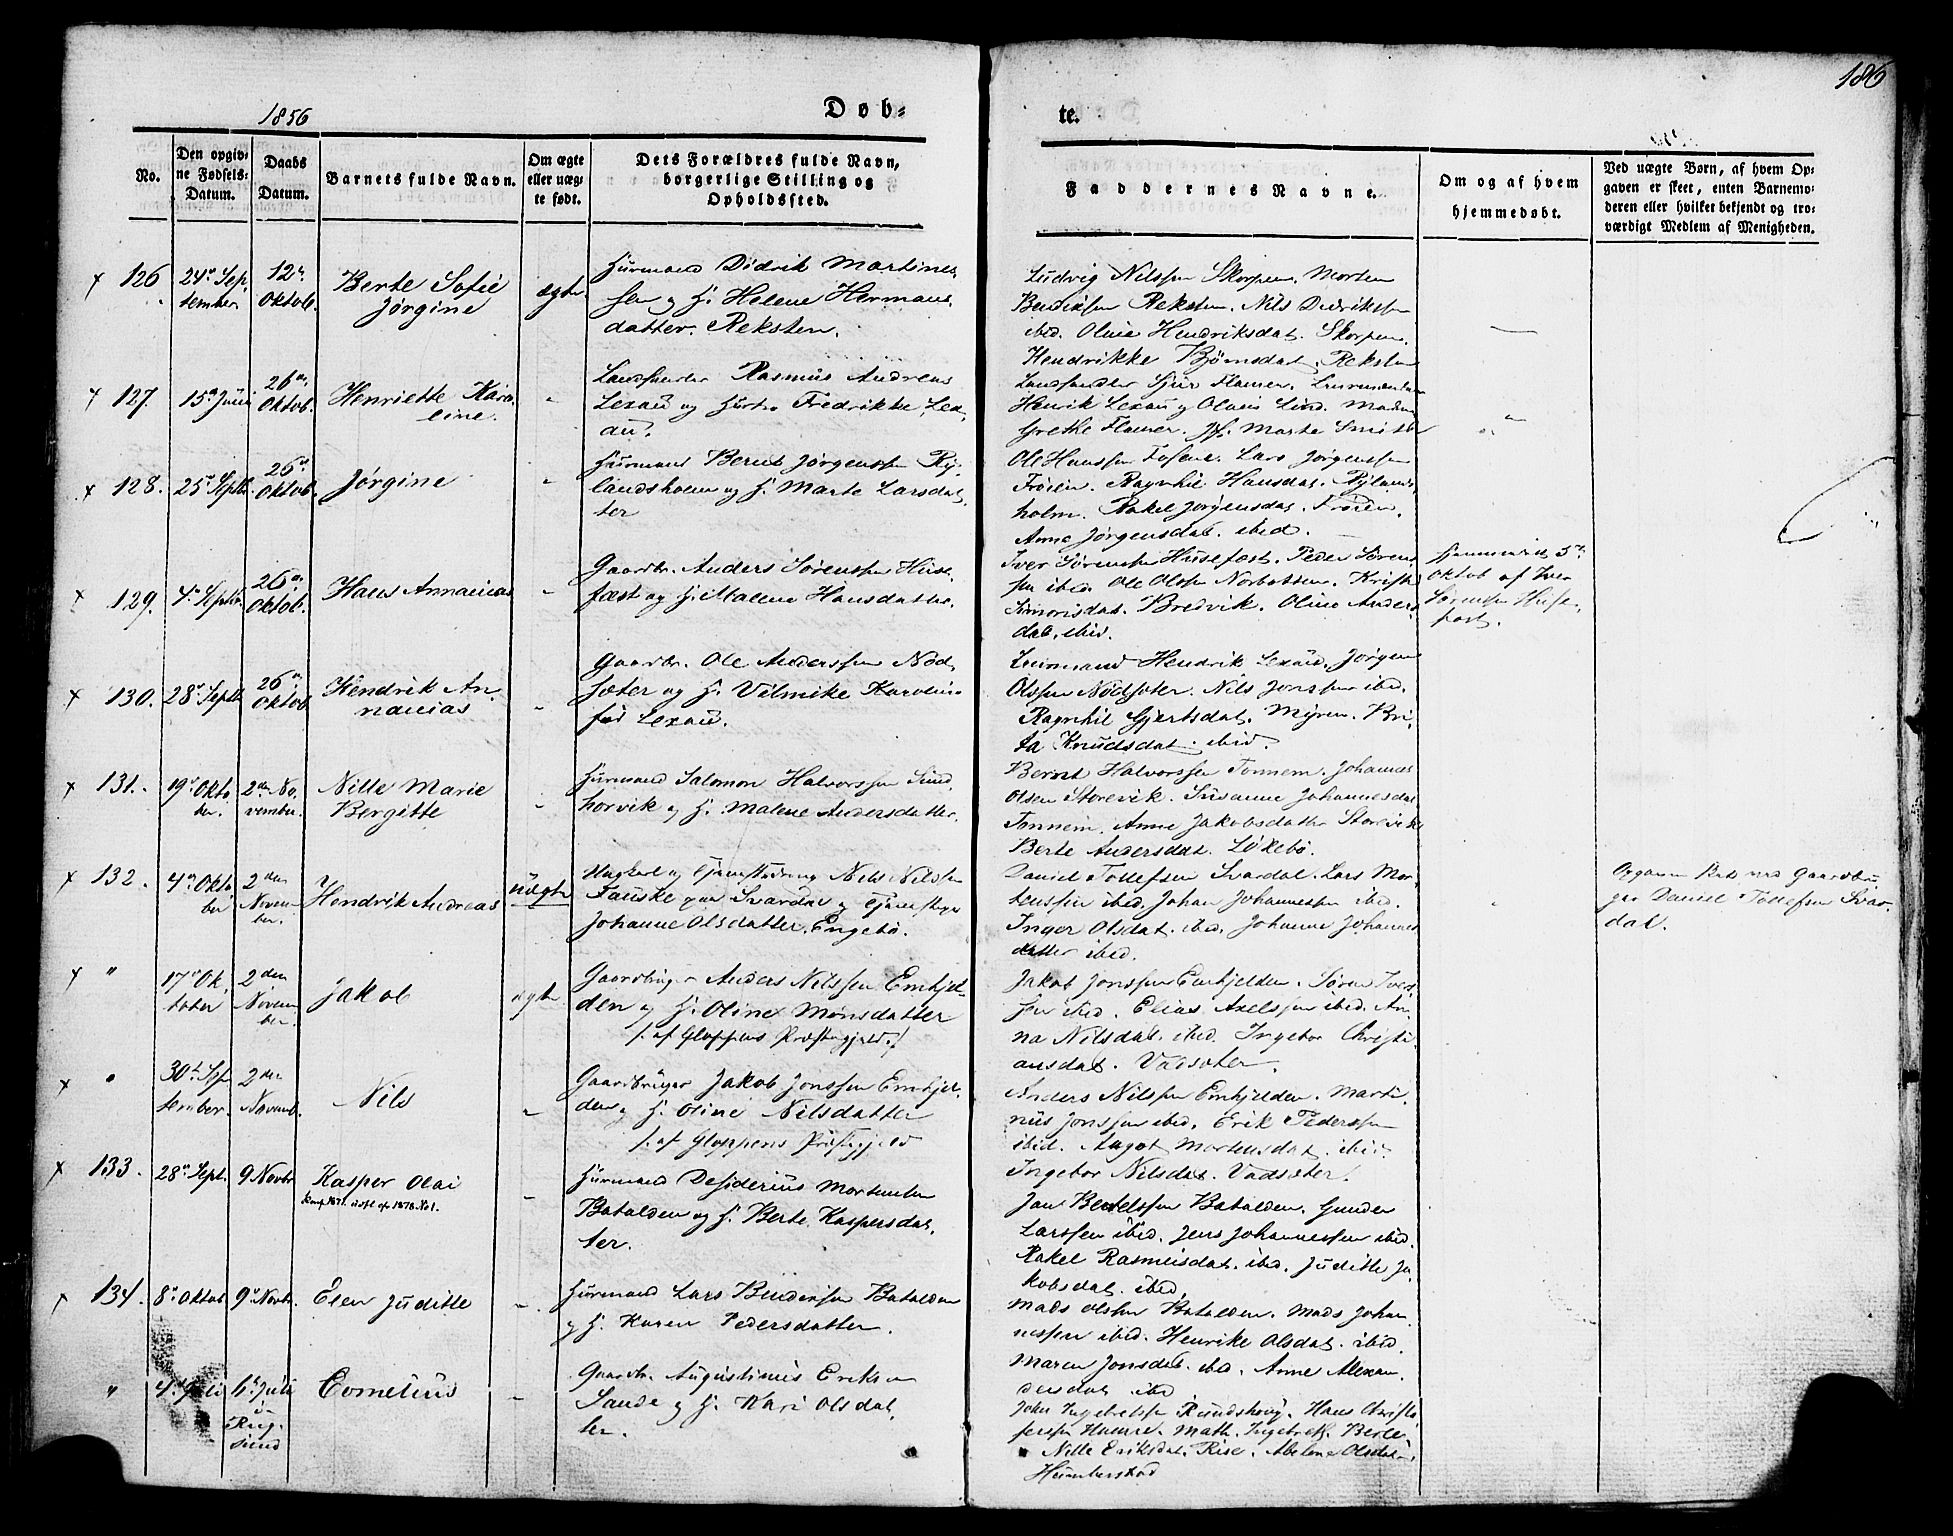 186
1856
Døb-
te.
No.
Den opgiv-
ne Fødsels-
Datum.
Daabs
Datum.
Barnets fulde Navn.
Om ægte
eller uæg-
te født.
Dets Forældres fulde Navn,
borgerlige Stilling og
Opholdssted.
Faddernes Navne.
Om og af hvem
hjemmedøbt.
Ved uægte Børn, af hvem Op-
gaven er skeet, enten Barnemo-
deren eller hvilket bekjendt og tro-
værdigt Medlem af Menigheden.
126
24de Sep-
tember
12te
Oktob.
Berte Sofie
Jørgine
ægte
Huusmand Didrik Martines-
sen og H. Helene Hermans-
datter. Reksten.
Ludvig Nilssen Skorpen. Morten
Bendixsen Reksten. Nils Didrikssen
ibid. Oline Hendriksdat. Skorpen.
Hendrikke Bjørnsdat. Reksten
127.
15de Juni
26de
Oktob.
Henriette Karo-
line.
Landhandler Rasmus Andreas
Lexau og Hustru Fredrikke Lex-
au.
Landhandler Sjur Flamer.
Henrik Lexau og Olaus Lind. Madam
Grethe Flamer. Marte Smith
128.
25de Septb.
26de
Oktob.
Jørgine
Huusmand Bernt Jørgenssen Ry-
landsholm og H. Marte Larsdat-
ter
Ole Hanssen Fosene. Lars Jørgenssen
Frøien. Ragnhil Hansdat. Rylands-
holm. Rakel Jørgensdat. Frøien.
Anne Jørgensdat. ibid.
129.
4de Septbr.
26de
Oktob.
Hans Annanias
Gaardbr. Anders Sørenssen Huse-
fæst og H. Malene Hansdatter.
Iver Sørenssen Husefæst. Peder Søren-
sen ibid. Ole Olsen Norbotten. Kristi
Simonsdat. Bredvik. Oline Anders-
dat. ibid.
hjemmedøbt 5te
Oktob af Iver
Sørenssen Huse-
fæst.
130.
28de Septb.
26de
Oktob.
Hendrik An-
nanias
Gaardbr. Ole Anderssen Nød-
sæter og H. Vilmike Karoline
fød Lexau.
Hendrik Lexau. Jørgen
Olssen Nødsæter. Nils Jonssen ibid.
Ragnhil Gjertsdat. Myren. Bri-
ta Knudsdat. ibid.
131.
19de Okto-
ber.
2den No-
vember.
Nille Marie
Bergitte
Huusmand Salomon Halvorssen Sind-
horvik og H. Malene Andersdatter.
Bernt Halvorssen Tonnem. Johannes
Olsen Storevik. Susanne Johannesdat
Tonnem. Anne Jakobsdatter Storevik
Berte Andersdat. Løkebø.
132.
4de Okto-
ber
2den
Novem-
ber.
Hendrik Andreas
uægte
Ungkarl og Tjenestedreng Nils Nilssen
Fauske paa Svardal og Tjenestepige
Johanne Olsdatter. Engebø.
Daniel Tollefsen Svardal. Lars Mor-
tenssen ibid. Johan Johannessen ibid.
Inger Olsdat. ibid. Johanne Johannes-
datter ibid.
Opgaven skeet ved Gaardbru-
ger Daniel Tollefsen Svar-
dal.
"
17de Ok-
tober
2den
Novem-
ber.
Jakob
ægte
Gaardbruger Anders Nilssen Emhjel-
den og H. Oline Mønsdatter
/: af Gloppens Præstegjeld :/
Jakob Jonssen Emhjelden. Søren Iver-
sen ibid. Elias Axelssen ibid. An-
na Nilsdat. ibid. Ingebor Christi-
ansdat. Vadsæter.
"
30te Sep-
tember.
2den
Novemb.
Nils
Gaardbruger Jakob Jonssen Emhjel-
den og H. Oline Nilsdatter
/: af Gloppens Præstegjeld
Anders Nilssen Emhjelden. Marti-
nus Jonssen ibid. Erik Pederssen
ibid. Aagot Mortensdat. ibid
Ingebor Nilsdat. Vadsæter.
133.
28de Sept.
9 Novbr
Kasper Olai
Huusmand Desiderius Mortensen
Batalden og H. Berte Kaspersdat-
ter.
Jan Bertelssen Batalden. Gunder
Larssen ibid. Jens Johannessen ibid.
Rakel Rasmusdat. ibid. Juditte Ja-
kobsdat. ibid.
134.
8de Oktob
9de Novbr.
Elen Juditte
Huusmand Lars Bendixsen Batalden
og H. Karen Pedersdatter.
Mads Olssen Batalden. Mads Johan-
nessen ibid. Henrike Olsdat. ibid.
Maren Jonsdat. ibid. Anne Alexan-
dersdat. ibid
"
4de Juli
6te Juli
i
Rug-
sund
Cornelius
Gaardbr. Augustinus Eriksen
Sande og H. Kari Olsdat-
ter.
John Ingebretssen Rundshoug. Hans Christo-
fersen Hamre. Math. Ingebretss. Berte-
Nille Eriksdat. Rise. Abelone Olsdatter,
Humberstad